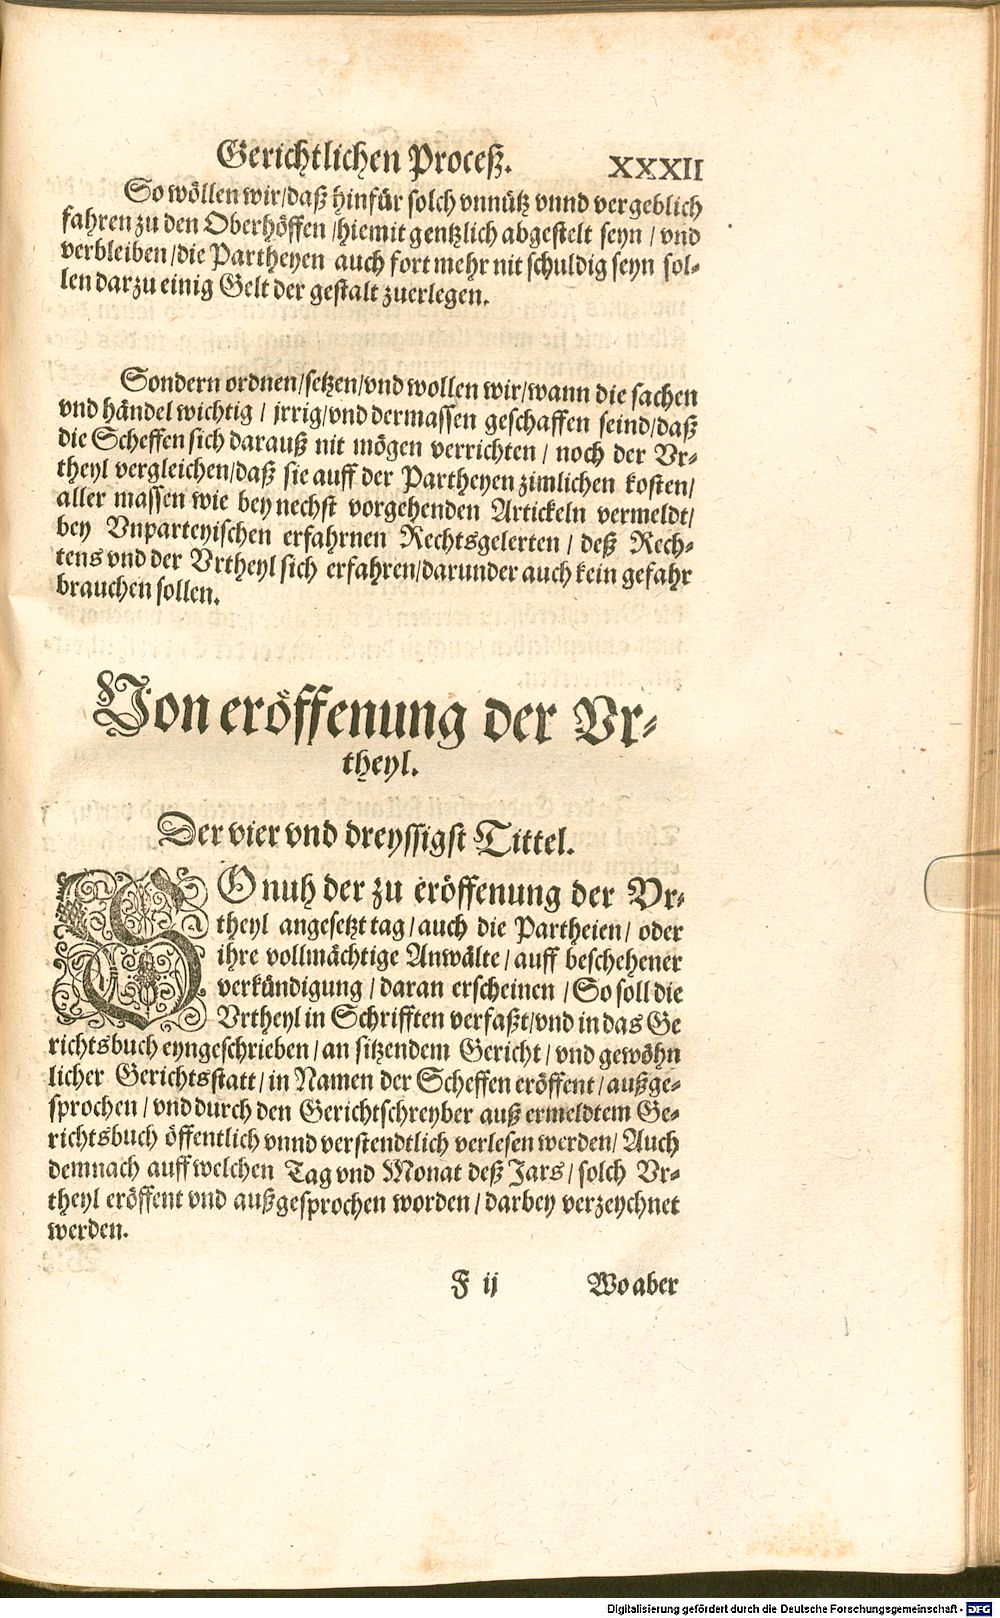 Gerichtlichen Proceß. XXXII
So wöllen wir/daß hinfür solch vnnütz vnnd vergeblich
fahren zu den Oberhöffen/hiemit gentzlich abgestelt seyn/vnd
verbleiben/die Partheyen auch fort mehr nit schuldig seyn sol-
len darzu einig Gelt der gestalt zuerlegen.
Sondern ordnen/setzen/vnd wollen wir/wann die sachen
vnd händel wichtig/jrrig/vnd dermassen geschaffen seind/daß
die Scheffen sich darauß nit mögen verrichten/noch der Vr-
theyl vergleichen/daß sie auff der Partheyen zimlichen kosten/
aller massen wie bey nechst vorgehenden Artickeln vermeldt/
bey Vnparteyischen erfahrnen Rechtsgelerten/deß Rech-
tens vnd der Vrtheyl sich erfahren/darunder auch kein gefahr
brauchen sollen.
Von eröffenung der Vr-
theyl.
Der vier vnd dreyssigst Tittel.
SO nuh der zu eröffenung der Vr-
theyl angesetzt tag/auch die Partheien/oder
ihre vollmächtige Anwälte/auff beschehener
verkündigung/daran erscheinen/So soll die
Vrtheyl in Schrifften verfaßt/vnd in das Ge
richtsbuch eyngeschrieben/an sitzendem Gericht/vnd gewöhn
licher Gerichtsstatt/in Namen der Scheffen eröffent/außge-
sprochen/vnd durch den Gerichtschreyber auß ermeldtem Ge-
richtsbuch öffentlich vnnd verstendtlich verlesen werden/Auch
demnach auff welchen Tag vnd Monat deß Jars/solch Vr-
theyl eröffent vnd außgesprochen worden/darbey verzeychnet
werden.
F ij Wo aber
Digitalisierung gefördert durch die Deutsche Forschungsgemeinschaft - DFG